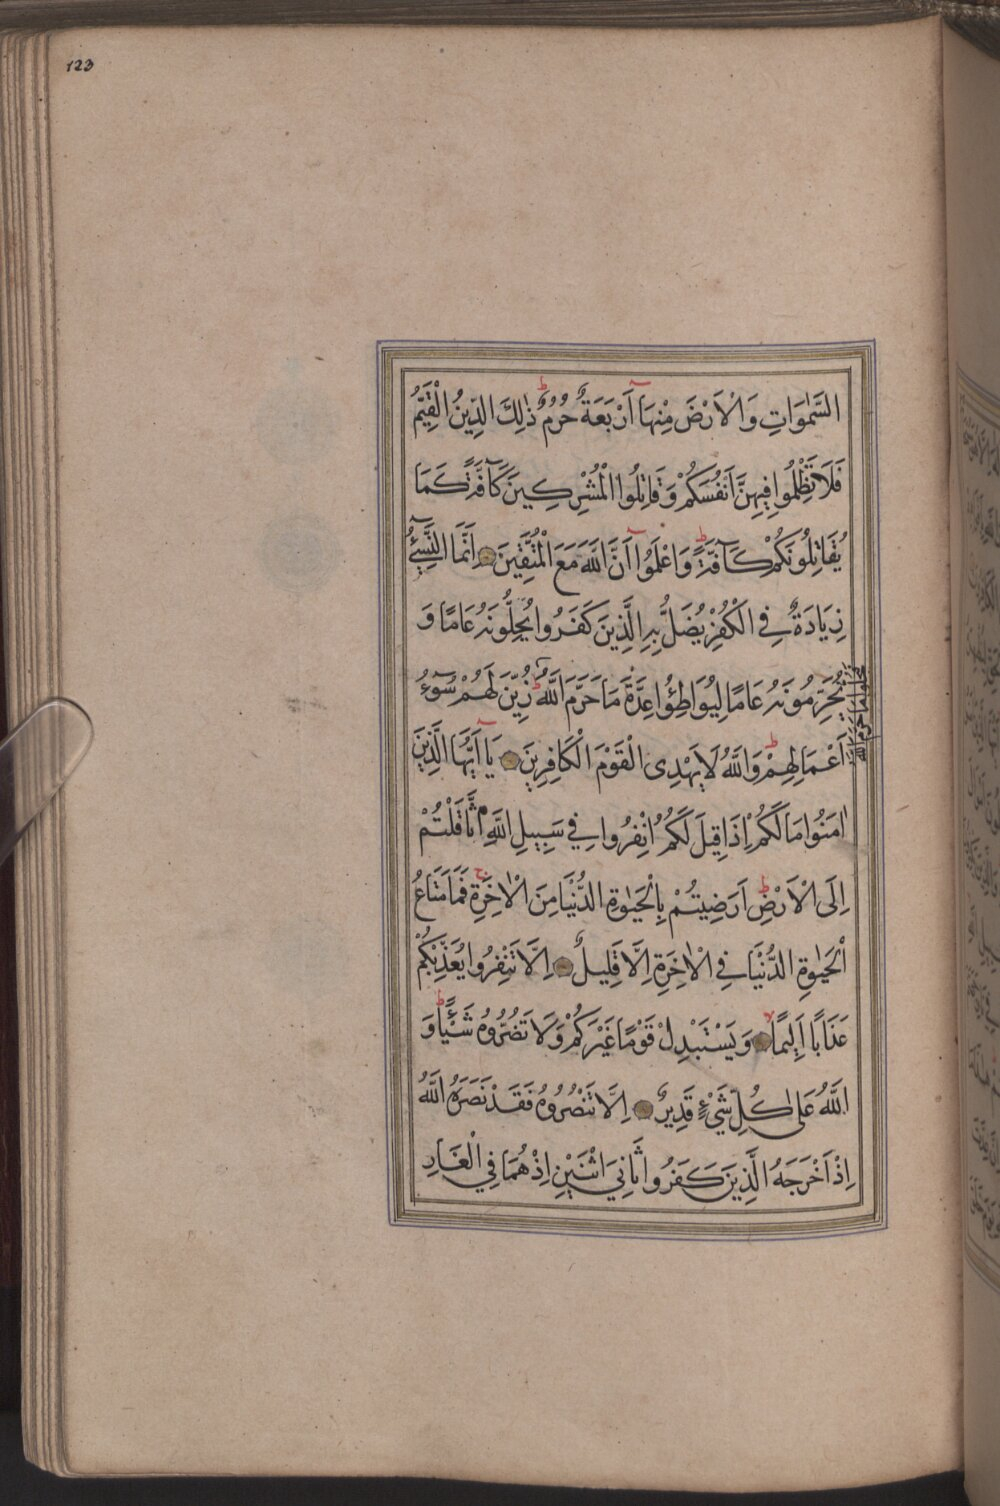 123
السَّمٰوَاتِ وَالْاَرْضَ مِنْهَٓا اَرْبَعَةٌ حُرُمٌ ط ذٰلِكَ الدّ۪ينُ الْقَيِّمُ
فَلَا تَظْلِمُوا ف۪يهِنَّ اَنْفُسَكُمْ وَقَاتِلُوا الْمُشْرِك۪ينَ كَٓافَّةً كَمَا
يُقَاتِلُونَكُمْ كَٓافَّةً ط وَاعْلَمُٓوا اَنَّ اللّٰهَ مَعَ الْمُتَّق۪ينَ اِنَّمَا النَّس۪ٓيءُ
زِيَادَةٌ فِي الْكُفْرِ يُضَلُّ بِهِ الَّذ۪ينَ كَفَرُوا يُحِلُّونَهُ عَامًا وَ
يُحَرِّمُونَهُ عَامًا لِيُوَاطِؤُا عِدَّةَ مَا حَرَّمَ اللّٰهُ ط زُيِّنَ لَهُمْ سُٓوءُ
فيحلوا ما حرم الله
اَعْمَالِهِمْ ط وَاللّٰهُ لَا يَهْدِى الْقَوْمَ الْكَافِر۪ينَ يَٓا اَيُّهَا الَّذ۪ينَ
اٰمَنُوا مَا لَكُمْ اِذَا ق۪يلَ لَكُمُ انْفِرُوا ف۪ي سَب۪يلِ اللّٰهِ اثَّاقَلْتُمْ
اِلَى الْاَرْضِ ط اَرَض۪يتُمْ بِالْحَيٰوةِ الدُّنْيَا مِنَ الْاٰخِرَةِ ج فَمَا مَتَاعُ
الْحَيٰوةِ الدُّنْيَا فِي الْاٰخِرَةِ اِلَّا قَل۪يلٌ اِلَّا تَنْفِرُوا يُعَذِّبْكُمْ
عَذَابًا اَل۪يمًا لا وَيَسْتَبْدِلْ قَوْمًا غَيْرَكُمْ وَلَا تَضُرُّوهُ شَيْـًٔا ط وَ
اللّٰهُ عَلٰى كُلِّ شَيْءٍ قَد۪يرٌ اِلَّا تَنْصُرُوهُ فَقَدْ نَصَرَهُ اللّٰهُ
اِذْ اَخْرَجَهُ الَّذ۪ينَ كَفَرُوا ثَانِيَ اثْنَيْنِ اِذْ هُمَا فِي الْغَارِ